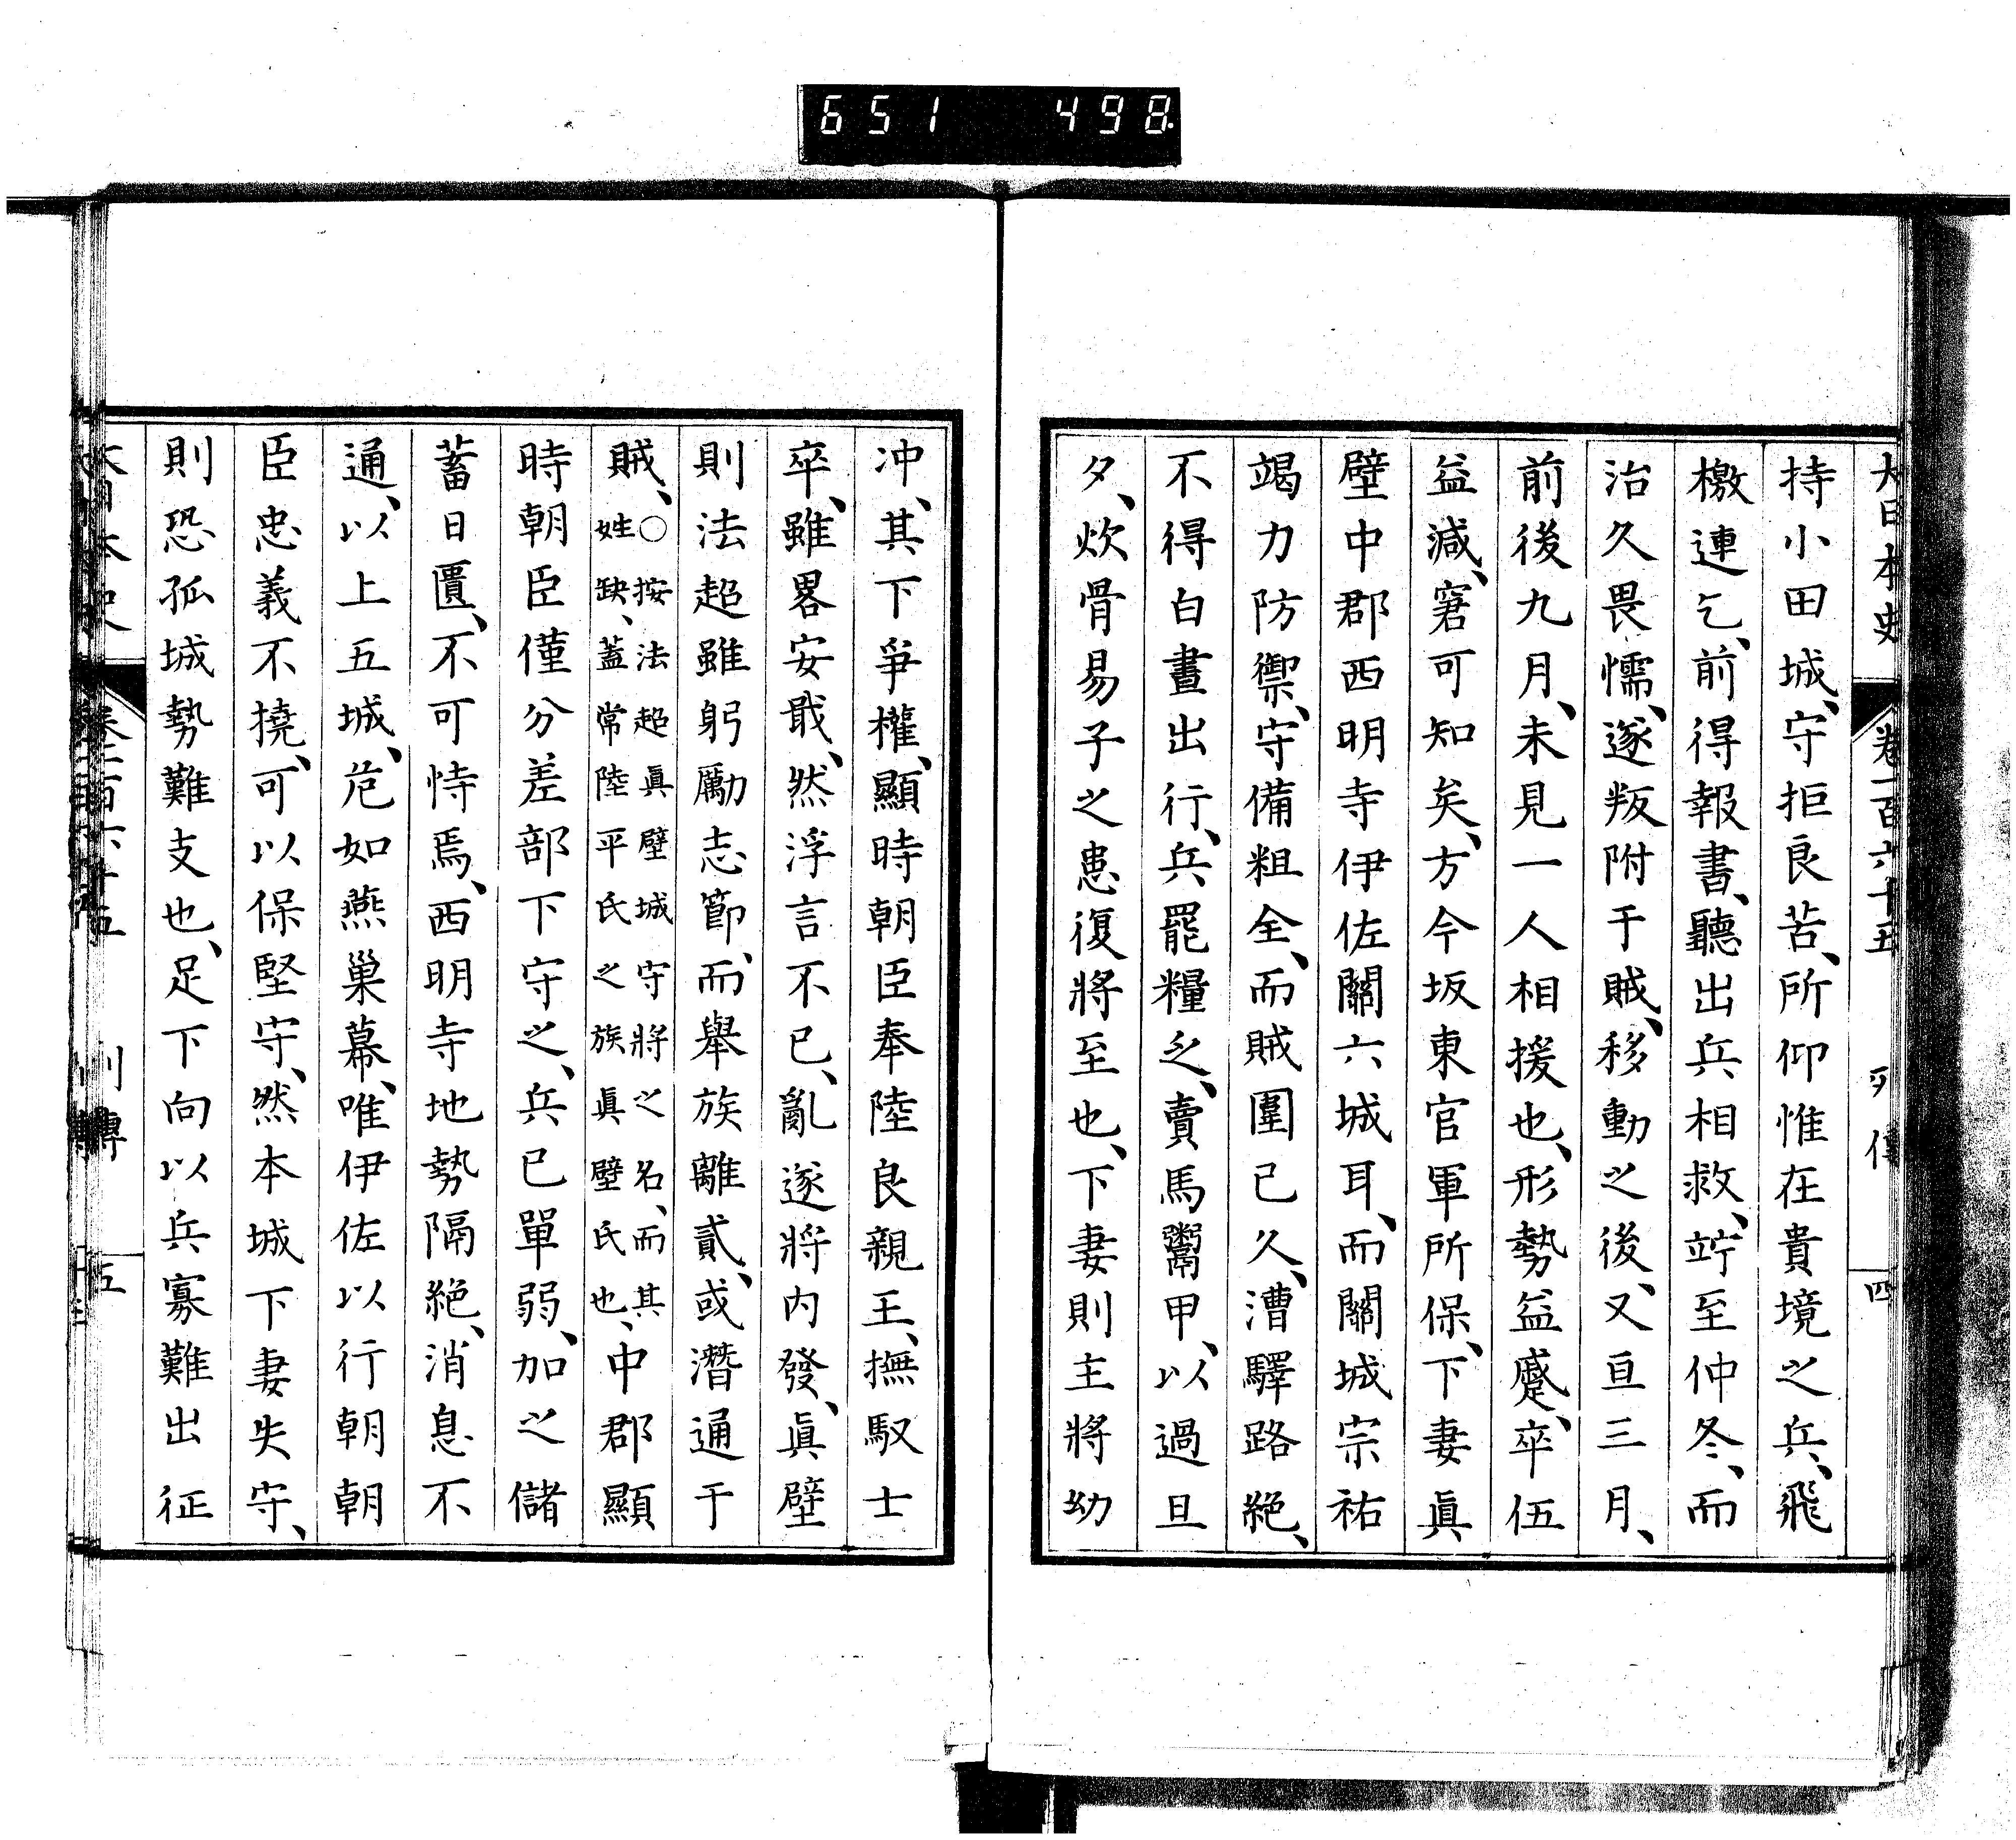 651 498
大日本史 卷一百六十五 列傳 四
持小田城、守拒良苦、所仰惟在貴境之兵、飛
檄連乞、前得報書、聽出兵相救、竚至仲冬、而
治久畏懦、遂叛附于賊、移動之後、又亘三月、
前後九月、未見一人相援也、形勢益蹙、卒伍
益減、窘可知矣、方今坂東官軍所保、下妻眞
壁中郡西明寺伊佐關六城耳、而關城宗祐
竭力防禦、守備粗全、而賊圍已久、漕驛路絕、
不得白晝出行、兵罷糧乏、賣馬鬻甲、以過旦
夕、炊骨易子之患復將至也、下妻則主將幼
冲、其下爭權、顯時朝臣奉陸良親王、撫馭士
卒、雖畧安戢、然浮言不已、亂遂將內發、眞壁
則法超雖躬勵志節、而舉族離貳、或潛通于
賊、○按法超眞壁城守將之名、而其姓缺、蓋常陸平氏之族眞壁氏也、中郡顯
時朝臣僅分差部下守之、兵已單弱、加之儲
蓄日匱、不可恃焉、西明寺地勢隔絕、消息不
通、以上五城、危如燕巢幕、唯伊佐以行朝朝
臣忠義不撓、可以保堅守、然本城下妻失守、
則恐孤城勢難支也、足下向以兵寡難出征
大日本史 卷一百六十五 列傳 五